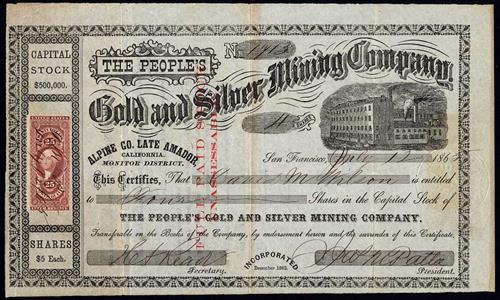 CAPITAL
STOCK
$500,000.
25
SHARES
$5 Each.
No
THE PEOPLE'S
Gold and Silver Mining Company,
4
Shares
ALPINE CO. LATE AMADOR
CALIFORNIA.
MONITOR DISTRICT.
FULLY PAID
UNASSESSABLE
San Francisco, July 12 186
This Certifies, That M Wilson is entitled
to Four Shares in the Capital Stock of
THE PEOPLE'S GOLD AND SILVER MINING COMPANY.
Transferable on the Books of the Company, by endorsement hereon and the surrender of this Certificate.
INCORPORATED
December 1862.
Secretary.
President.